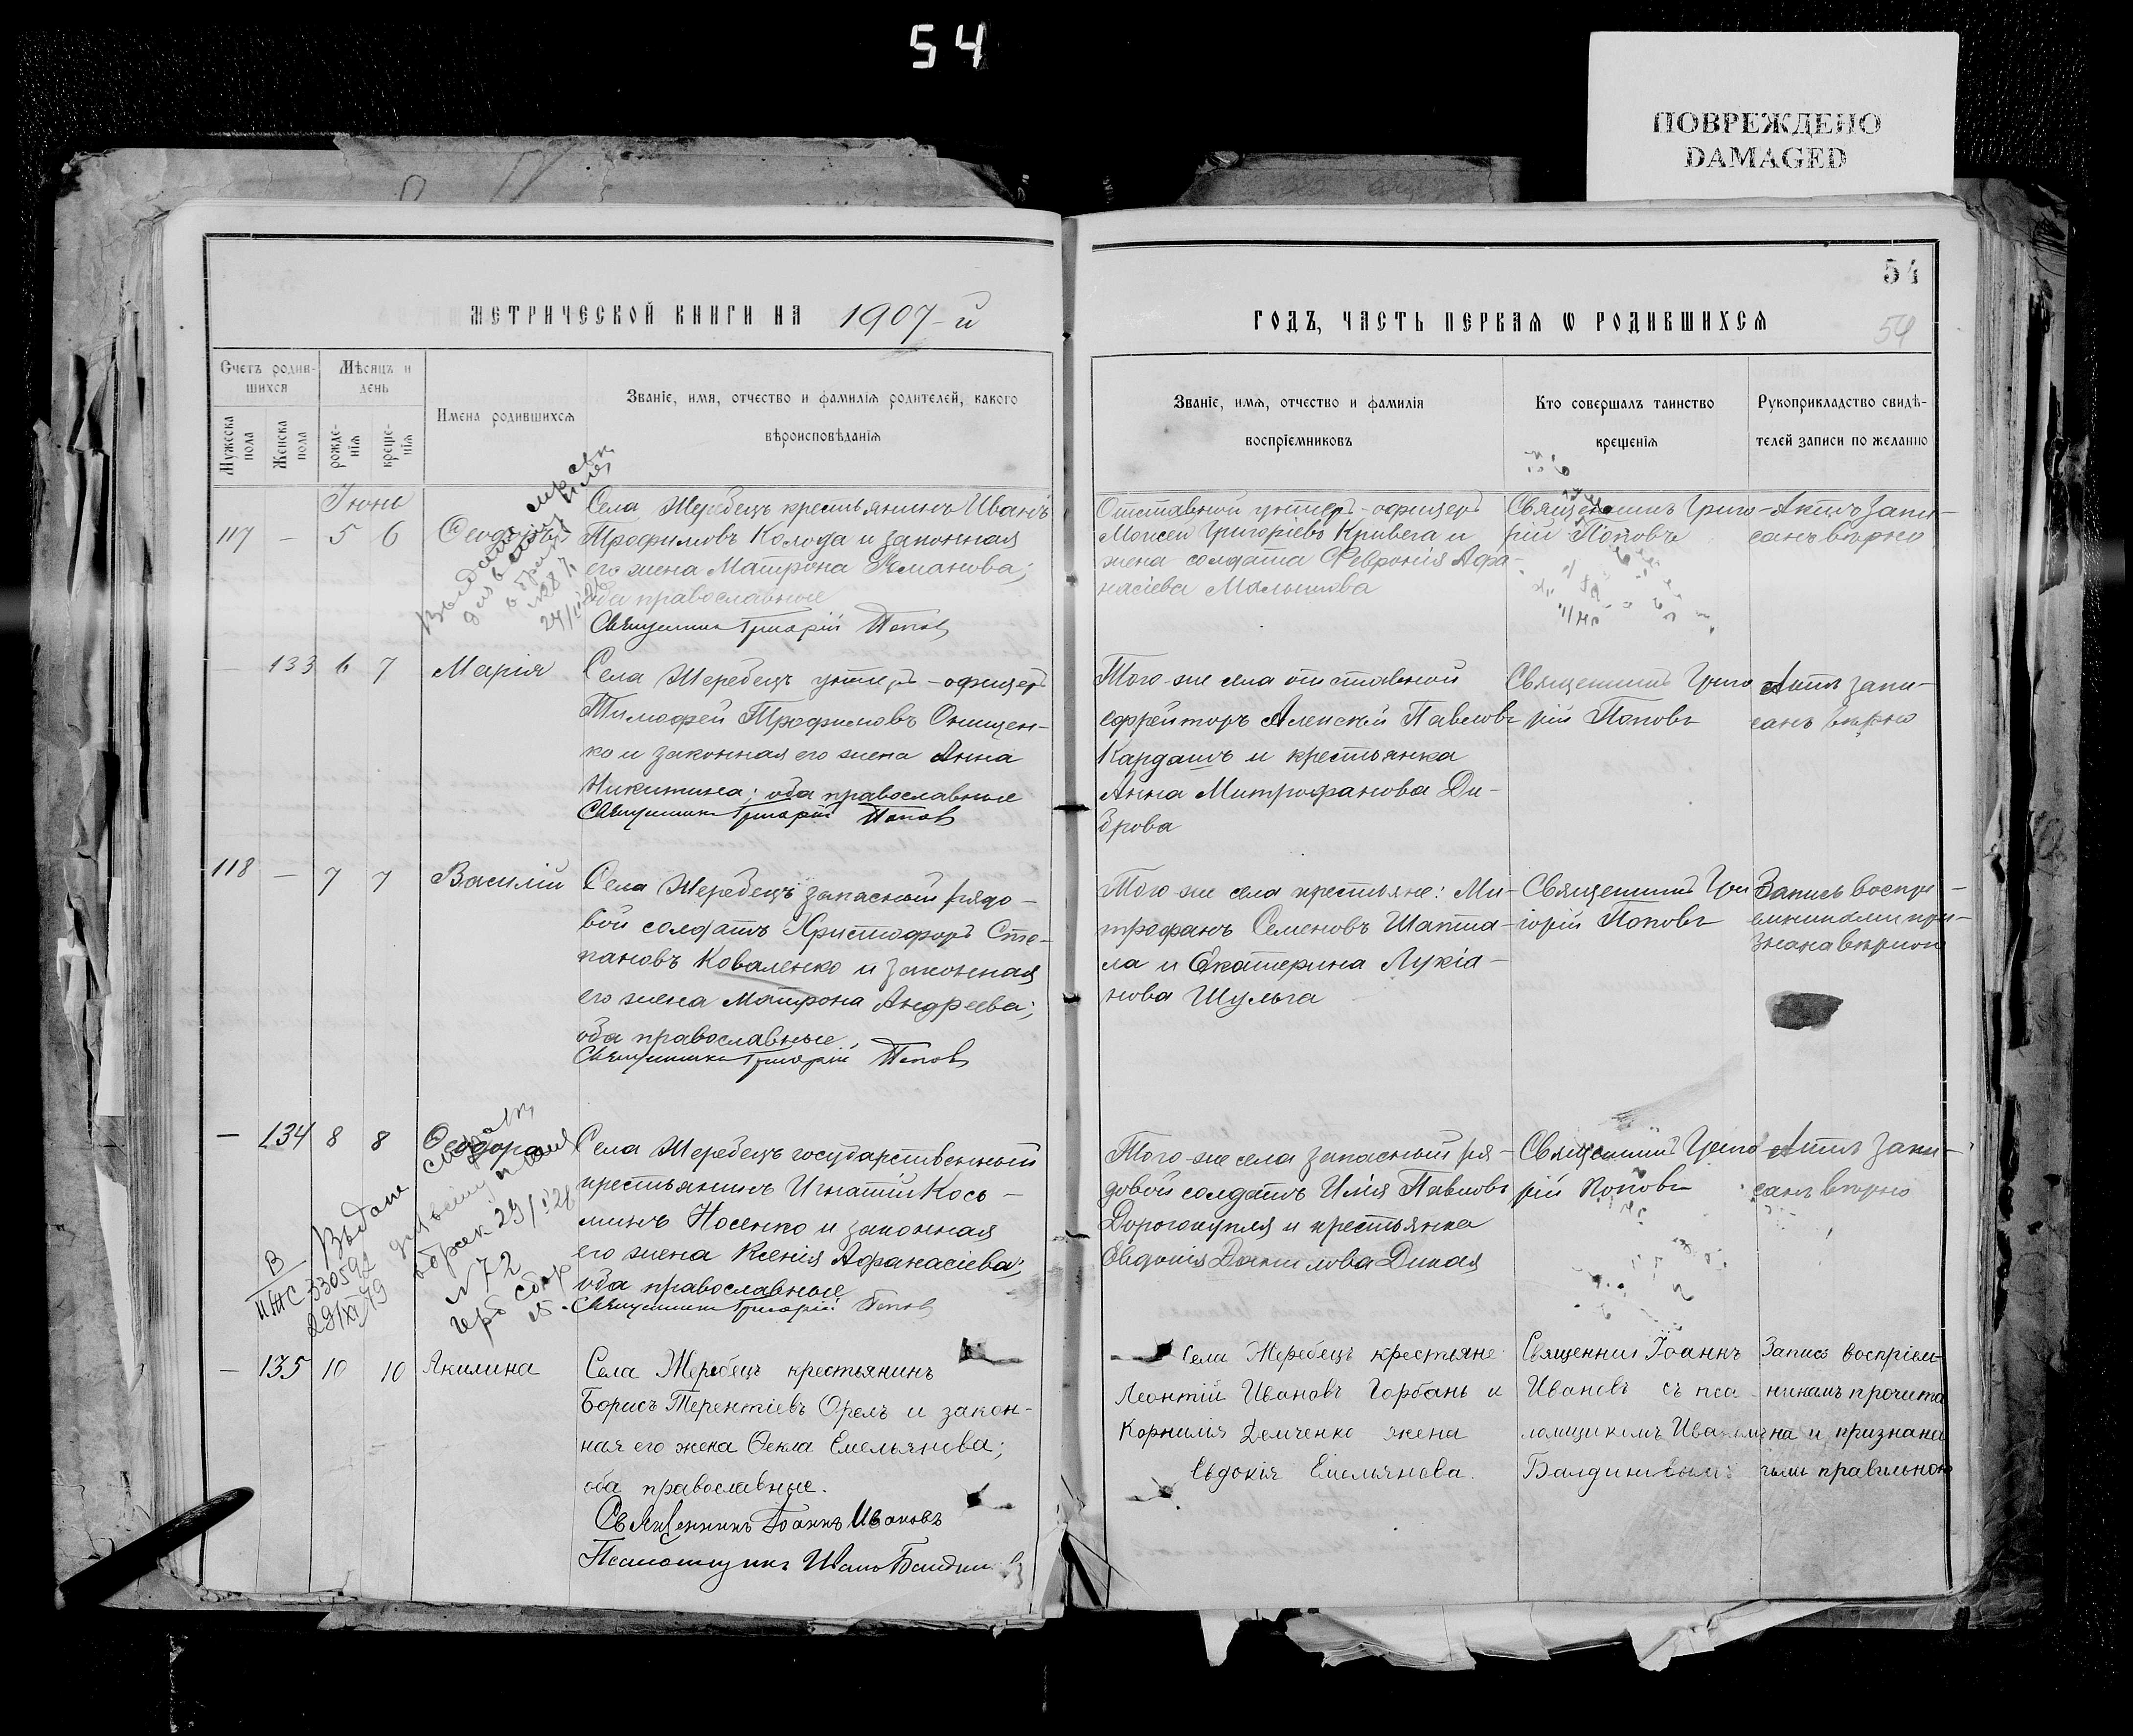 54
ПОВРЕЖДЕНО
DAMAGED
54
54
МЕТРИЧЕСКОЙ КНИГИ НА 1907-й
ГОДЪ, ЧАСТЬ ПЕРВАЯ Ѡ РОДИВШИХСЯ
Счетъ родив-
шихся
Мужеска пола
Женска пола
Мѣсяцъ и
день
рожде-
нія
креще-
нія
Имена родившихся
Званіе, имя, отчество и фамилія родителей, какого
вѣроисповѣданія
Званіе, имя, отчество и фамилія
воспріемниковъ
Кто совершалъ таинство
крещенія
Рукоприкладство свидѣ-
телей записи по желанію
Іюнь
117 — 5 6 Ѳеодоръ
Села Жеребецъ крестьянинъ Иванъ
Трофимовъ Колода и законная
его жена Матрона Романова;
оба православные
Священникъ Григорій Попов
Отставной унтеръ-офицеръ
Моисей Григоріевъ Кривега и
жена солдата Февронія Афа-
насіева Малышова
Священникъ Григо-
рій Поповъ
Актъ запи-
санъ вѣрно
— 133 6 7 Марія
Села Жеребецъ унтеръ-офицеръ
Тимофей Трофимовъ Онищен-
ко и законная его жена Анна
Никитина; оба православные
Священникъ Григорій Попов
Того-же села отставной
ефрейторъ Алексѣй Павловъ
Кардашъ и крестьянка
Анна Митрофанова Ди-
брова
Священникъ Григо
рій Поповъ
Актъ запи-
санъ вѣрно
118 — 7 7 Василій
Села Жеребецъ запасный рядо-
вой солдатъ Христофоръ Сте-
пановъ Коваленко и законная
его жена Матрона Андреева;
оба православные
Священникъ Григорій Попов
Того-же села крестьяне: Ми-
трофанъ Семеновъ Шапта-
ла и Екатерина Лукіа-
нова Шульга
Священникъ Гри-
горій Поповъ
Запись воспрі-
емниками при-
знана вѣрной
— 134 8 8 Ѳеодора
Села Жеребецъ государственный
крестьянинъ Игнатій Кось-
минъ Носенко и законная
его жена Ксенія Афанасіева;
оба православные
Священникъ Григорій Попов
Того-же села запасный ря-
довой солдатъ Илія Павловъ
Дорогокупля и крестьянка
Евдокія Данилова Дикая
Священникъ Григо-
рій Поповъ
Актъ запи-
санъ вѣрно
Выдана
о брак 29/I 28
№ 72
герб сбор
В
II ЖС 330592
29/XI 79
— 135 10 10 Акилина
Села Жеребецъ крестьянинъ
Борисъ Терентіевъ Орелъ и закон-
ная его жена Ѳекла Емельянова;
оба православные.
Священникъ Іоаннъ Ивановъ
Села Жеребецъ крестьяне
Леонтій Ивановъ Горбань и
Корнилія Демченко жена
Евдокія Емельянова.
Священник Іоаннъ
Ивановъ съ пса-
ломщикомъ Иваномъ
Балдиновымъ
Запись воспріем-
никамъ прочита
на и признана
ими правильною